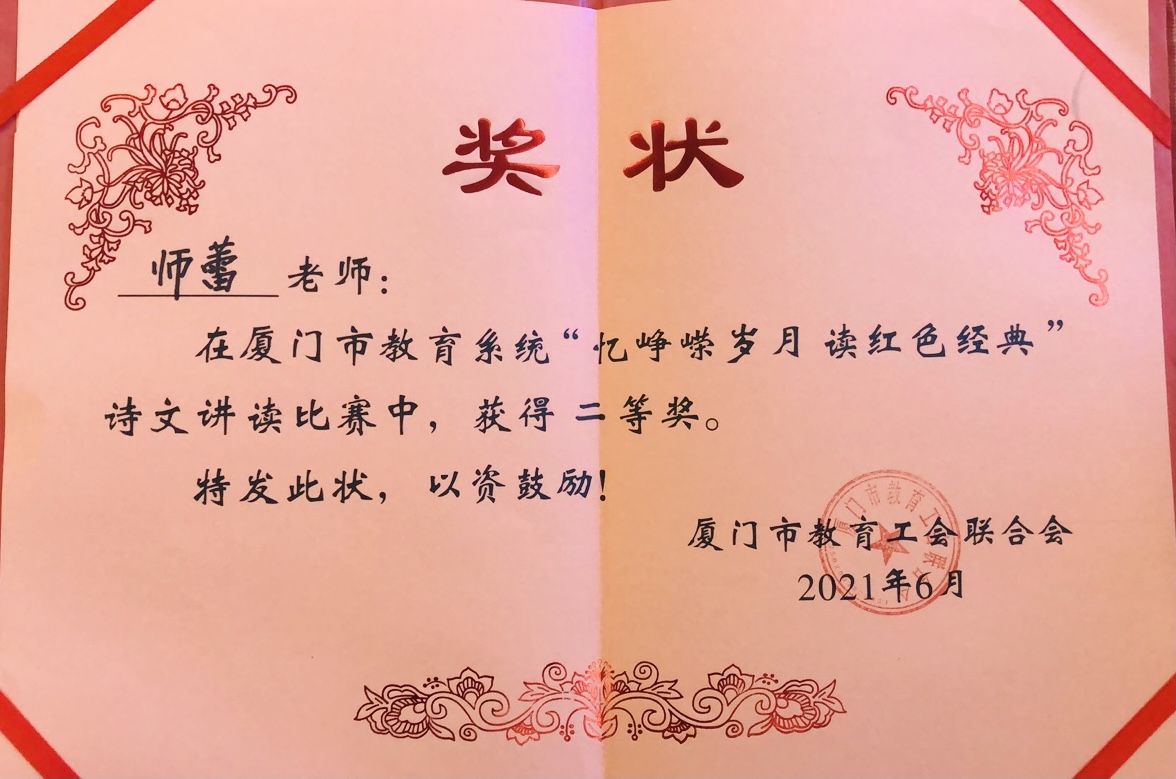 奖状
师蕾 老师：
在厦门市教育系统“忆峥嵘岁月 读红色经典”
诗文讲读比赛中，获得 二等奖。
特发此状，以资鼓励！
厦门市教育工会联合会
2021年6月
厦门市教育工会联合会